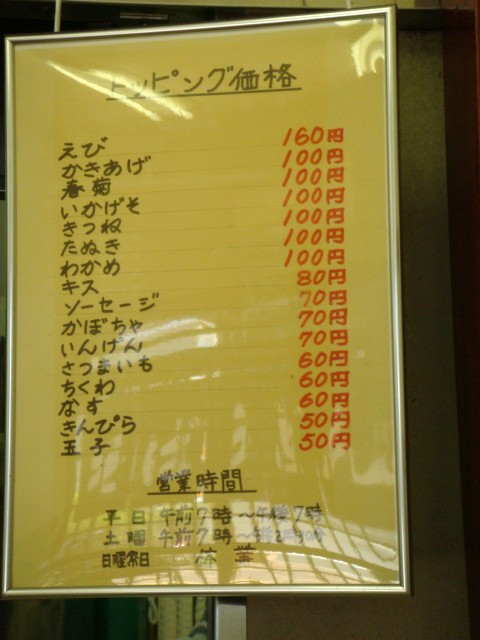 トッピング価格
えび 160円
かきあげ 100円
春菊 100円
いかげそ 100円
きつね 100円
たぬき 100円
わかめ 100円
キス 80円
ソーセージ 70円
かぼちゃ 70円
いんげん 70円
さつまいも 60円
ちくわ 60円
なす 60円
きんぴら 50円
玉子 50円
営業時間
平日 午前7時〜午後7時
土曜 午前7時〜午後2時30分
日曜祭日 休業